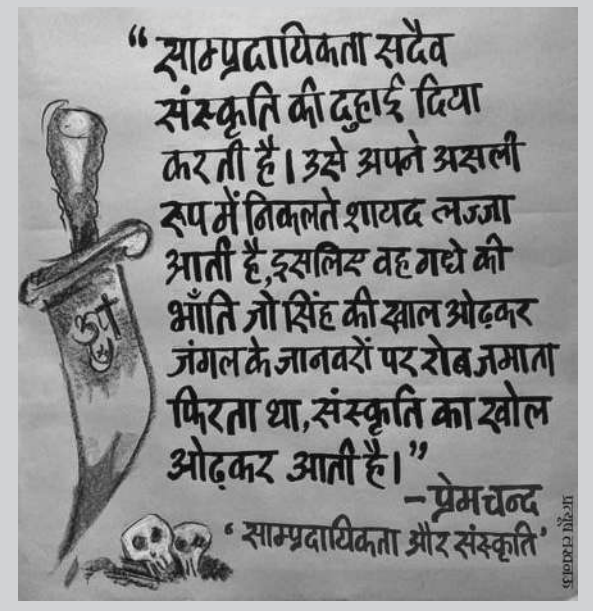 “साम्प्रदायिकता सदैव
संस्कृति की दुहाई दिया
करती है। उसे अपने असली
रूप में निकलते शायद लज्जा
आती है, इसलिए वह गधे की
भाँति जो सिंह की खाल ओढ़कर
जंगल के जानवरों पर रोब जमाता
फिरता था, संस्कृति का खोल
ओढ़कर आती है।”
- प्रेमचन्द
‘साम्प्रदायिकता और संस्कृति’
लखनऊ